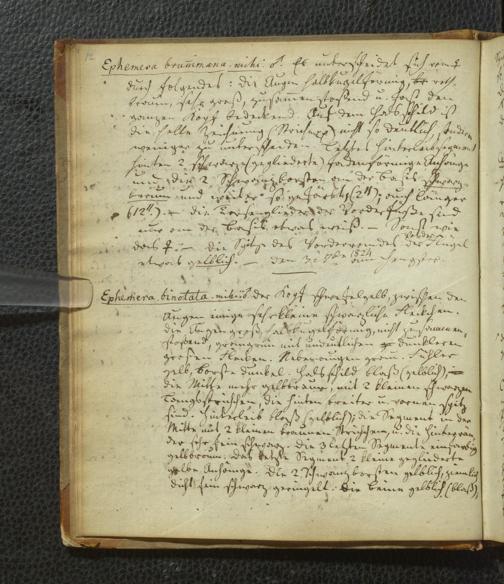 12
Ephemera brunnimana. mihi. ♂ Er unterscheidet sich vom ♀
durch folgendes: die Augen halbkugelförmig, roth-
braun, sehr groß, zusammenstoßend u. fast den
ganzen Kopf bedeckend. Auf dem Halsschild ist
die helle Zeichnung nicht so deutlich, sondern
weniger zu unterscheiden. Letztes Hinterleibssegment
hinten 2 schwarze (gegliederte) fadenförmige Anhänge
und die 2 Schwanzborsten an der Basis schwarz-
braun und weiter so gefärbt, (2''') auch länger
(12'''). — die Vorderfüße sind
nur an der Basis etwas weiß. — Sonst wie
das ♀. — die Spitze des Vorderrandes der Flügel
etwas gelblich. — den 1824
Ephemera binotata. mihi. ♂. der Kopf schwefelgelb, zwischen den
Augen einige sehr kleine schwärzliche Fleckchen.
die Augen groß, halbkugelförmig, nicht zusammen-
stoßend, graugrün mit undeutlichen dunkleren
großen Flecken. Nebenaugen grau. Fühler
gelb, Borste dunkel. Halsschild blaß (gelblich), —
die Mitte mehr gelbbraun, mit 2 kleinen schwarzen
Längsstrichen, die hinten breiter u. vornen spitz
sind. Hinterleib blaß (gelblich); die Segment in der
Mitte mit 2 kleinen braunen Strichchen, u. die Hinterran-
der sehr fein schwarz. die 3 letzten Segmente einfarbig
gelbbraun. das letzte Segment 2 kleine gegliederte
gelbe Anhänge. die 2 Schwanzborsten gelblich, ziemlich
dicht fein schwarz geringelt. die Beine gelblich (blaß),